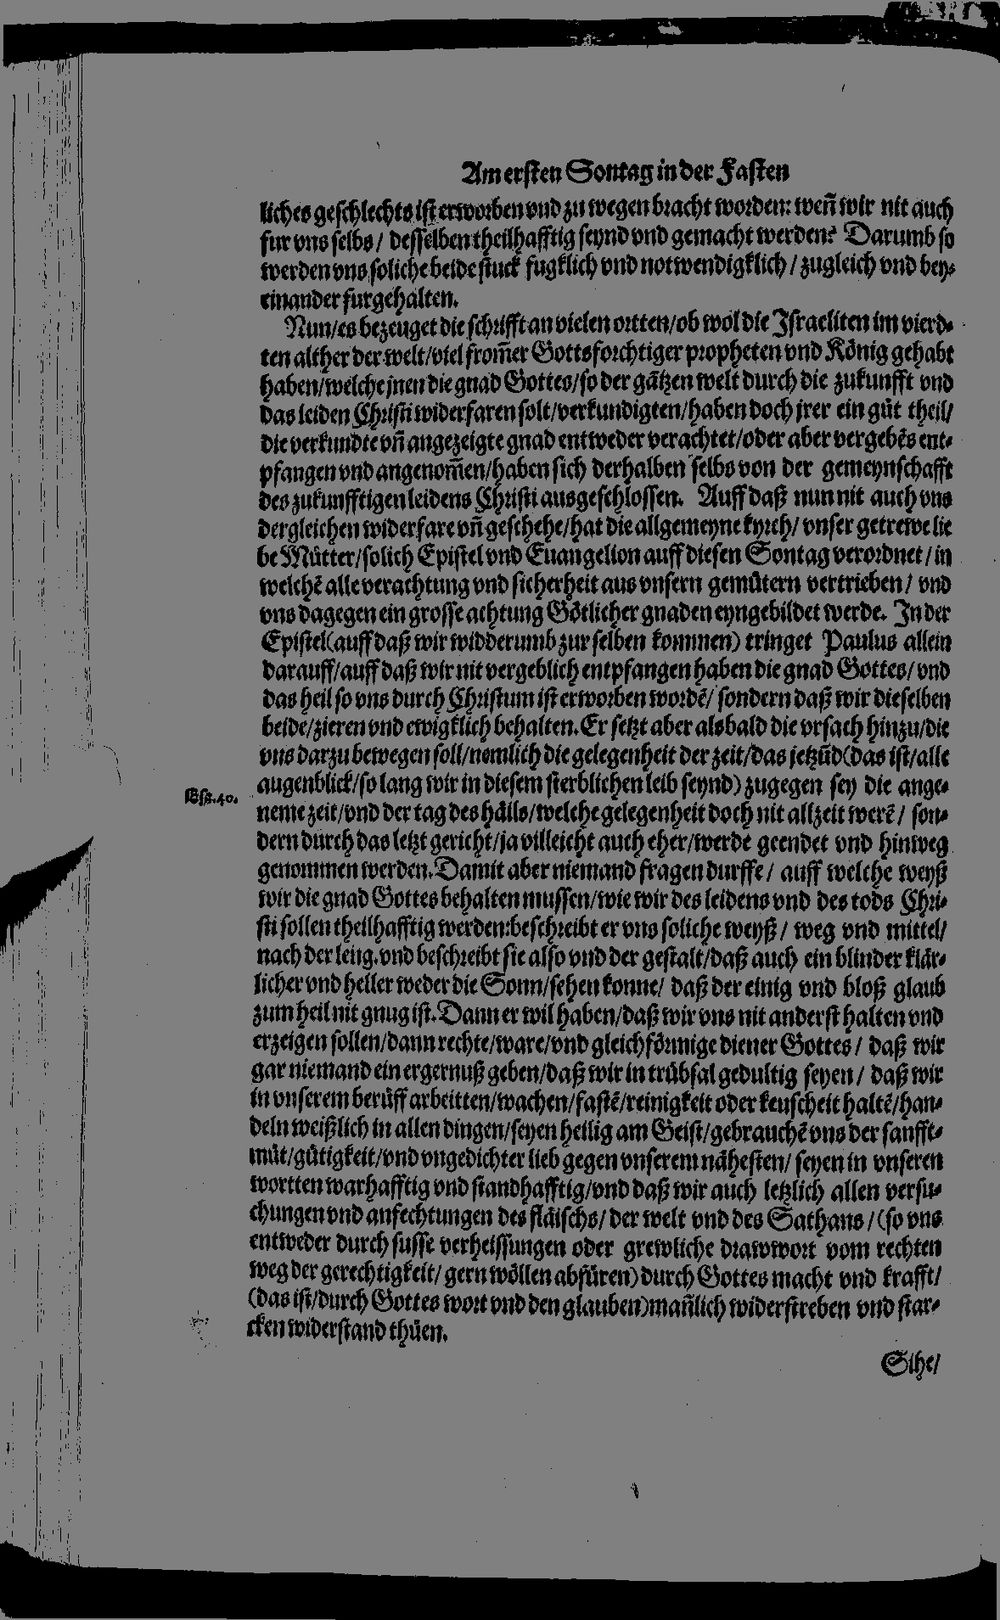 Am ersten Sontag in der Fasten
liches geschlechts ist erworben vnd zu wegen bracht worden: weñ wir nit auch
fur vns selbs / desselben theilhafftig seynd vnd gemacht werden? Darumb so
werden vns soliche beide stuck fugklich vnd notwendigklich / zugleich vnd bey-
einander furgehalten.
Nun/es bezeuget die schrifft an vielen ortten/ob wol die Israeliten im vierd-
ten alther der welt/viel from̃er Gottsforchtiger propheten vnd König gehabt
haben/welche jnen die gnad Gottes/so der gãtzen welt durch die zukunfft vnd
das leiden Christi widerfaren solt/verkundigten/haben doch jrer ein gůt theil/
die verkundte vñ angezeigte gnad entweder verachtet/oder aber vergebẽs ent-
pfangen vnd angenom̃en/haben sich derhalben selbs von der gemeynschafft
des zukunfftigen leidens Christi ausgeschlossen. Auff daß nun nit auch vns
dergleichen widerfare vñ geschehe/hat die allgemeyne kyrch/ vnser getrewe lie
be Můtter/solich Epistel vnd Euangelion auff diesen Sontag verordnet/in
welchẽ alle verachtung vnd sicherheit aus vnsern gemütern vertrieben/ vnd
vns dagegen ein grosse achtung Götlicher gnaden eyngebildet werde. In der
Epistel(auff daß wir widderumb zur selben kommen) tringet Paulus allein
darauff/auff daß wir nit vergeblich entpfangen haben die gnad Gottes/ vnd
das heil so vns durch Christum ist erworben wordẽ/ sondern daß wir dieselben
beide/zieren vnd ewigklich behalten. Er setzt aber alsbald die vrsach hinzu/die
vns darzu bewegen soll/nemlich die gelegenheit der zeit/das jetzũd(das ist/alle
augenblick/so lang wir in diesem sterblichen leib seynd) zugegen sey die ange-
Esa. 40.
neme zeit/vnd der tag des häils/welche gelegenheit doch nit allzeit werẽ/ son-
dern durch das letzt gericht/ja villeicht auch eher/werde geendet vnd hinweg
genommen werden. Damit aber niemand fragen durffe/ auff welche weyß
wir die gnad Gottes behalten mussen/wie wir des leidens vnd des tods Chri-
sti sollen theilhafftig werden:beschreibt er vns soliche weyß/ weg vnd mittel/
nach der leng. vnd beschreibt sie also vnd der gestalt/daß auch ein blinder klär-
licher vnd heller weder die Sonn/sehen konne/ daß der einig vnd bloß glaub
zum heil nit gnug ist. Dann er wil haben/daß wir vns nit anderst halten vnd
erzeigen sollen/dann rechte/ware/vnd gleichförmige diener Gottes/ daß wir
gar niemand ein ergernuß geben/daß wir in trübsal gedultig seyen/ daß wir
in vnserem berůff arbeitten/wachen/fastẽ/reinigkeit oder keuscheit haltẽ/han-
deln weißlich in allen dingen/seyen heilig am Geist/gebrauchẽ vns der sanfft-
můt/gütigkeit/vnd vngedichter lieb gegen vnserem nähesten/ seyen in vnseren
wortten warhafftig vnd standhafftig/vnd daß wir auch letzlich allen versu-
chungen vnd anfechtungen des fläischs/ der welt vnd des Sathans/(so vns
entweder durch susse verheissungen oder grewliche drawwort vom rechten
weg der gerechtigkeit/ gern wöllen abfüren) durch Gottes macht vnd krafft/
(das ist/durch Gottes wort vnd den glauben)mañlich widerstreben vnd star-
cken widerstand thůen.
Sihe/